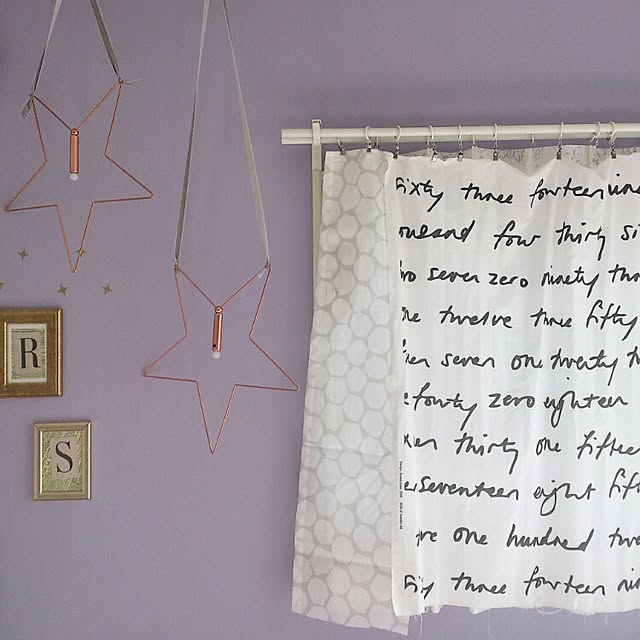 R
S
sixty three fourteen nine
thousand four thirty si
two seven zero ninety thr
one twelve three fifty
seven one twenty t
forty zero eighteen
thirty one fifteen
seventeen eight fift
one hundred twe
sixty three fourteen nin